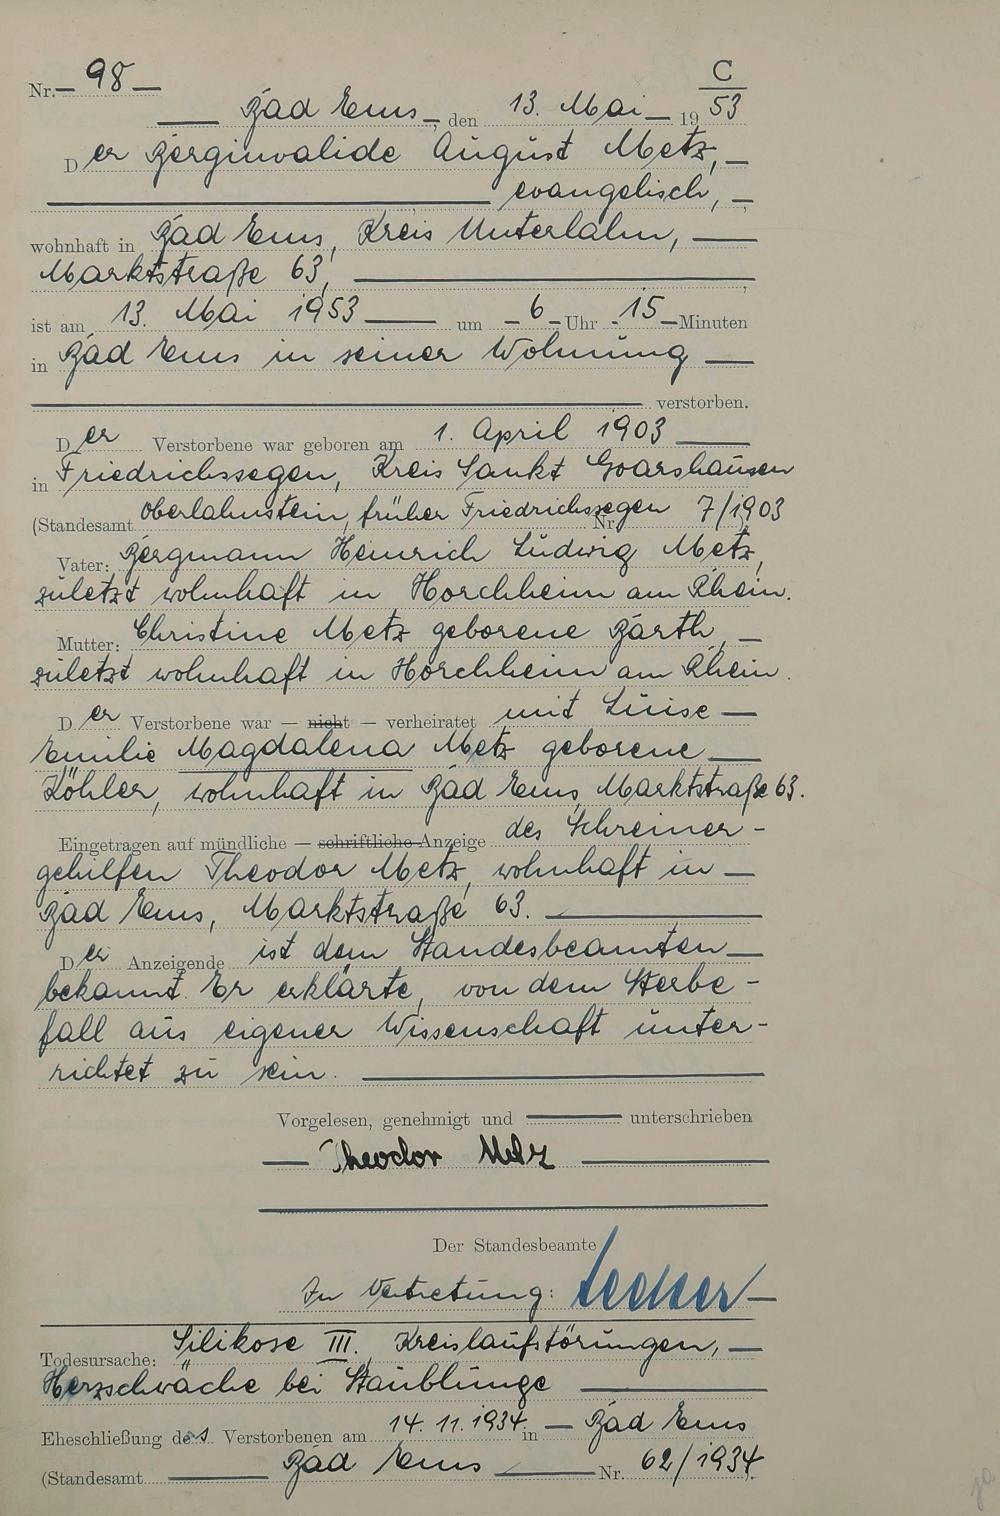 Nr. — 98 — C
— Bad Ems —, den 13. Mai — 19 53
Der Berginvalide August Metz, —
— evangelisch, —
wohnhaft in Bad Ems, Kreis Unterlahn, —
Marktstraße 63, —
ist am 13. Mai 1953 — um — 6 — Uhr — 15 — Minuten
in Bad Ems in seiner Wohnung —
— verstorben.
Der Verstorbene war geboren am 1. April 1903 —
in Friedrichssegen, Kreis Sankt Goarshausen
(Standesamt Oberlahnstein, früher Friedrichssegen Nr. 7/1903
Vater: Bergmann Heinrich Ludwig Metz,
zuletzt wohnhaft in Horchheim am Rhein.
Mutter: Christine Metz geborene Barth, —
zuletzt wohnhaft in Horchheim am Rhein.
Der Verstorbene war — nicht — verheiratet mit Luise —
Emilie Magdalena Metz geborene —
Köhler, wohnhaft in Bad Ems, Marktstraße 63.
Eingetragen auf mündliche — schriftliche Anzeige des Schreiner-
gehilfen Theodor Metz, wohnhaft in —
Bad Ems, Marktstraße 63. —
Der Anzeigende ist dem Standesbeamten —
bekannt. Er erklärte, von dem Sterbe-
fall aus eigener Wissenschaft unter-
richtet zu sein. —
Vorgelesen, genehmigt und — unterschrieben
— Theodor Metz —
Der Standesbeamte
In Vertretung:
Todesursache: Silikose III. Kreislaufstörungen, —
Herzschwäche bei Staublunge —
Eheschließung des Verstorbenen am 14. 11. 1934 in — Bad Ems
(Standesamt — Bad Ems — Nr. 62/1934).
ja